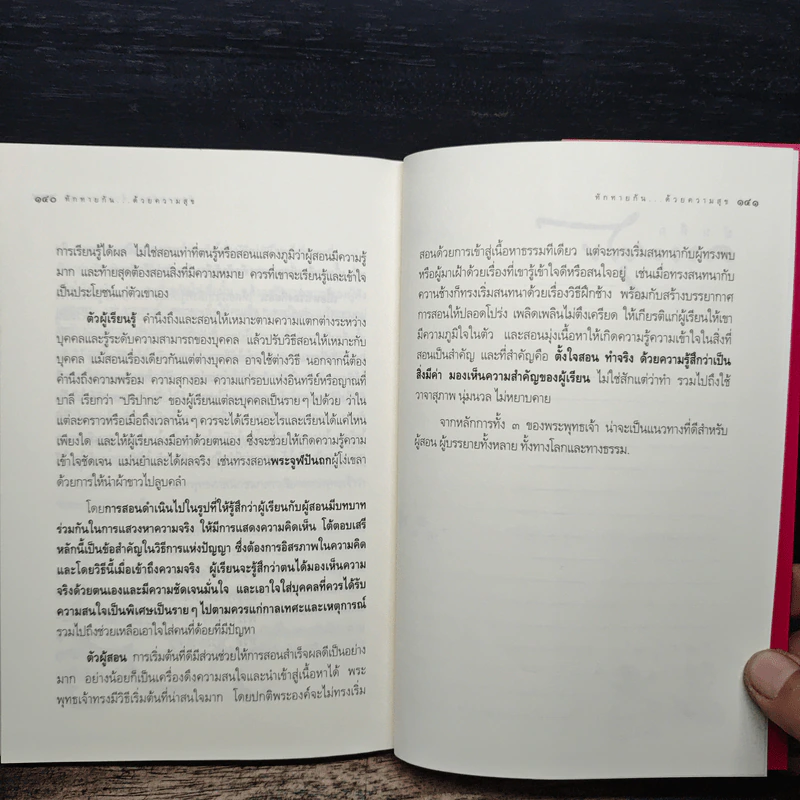 ๑๔๐ ทักทายกัน...ด้วยความสุข
การเรียนรู้ได้ผล ไม่ใช่สอนเท่าที่ตนรู้หรือสอนแสดงภูมิว่าผู้สอนมีความรู้
มาก และท้ายสุดต้องสอนสิ่งที่มีความหมาย ควรที่เขาจะเรียนรู้และเข้าใจ
เป็นประโยชน์แก่ตัวเขาเอง
ตัวผู้เรียนรู้ คำนึงถึงและสอนให้เหมาะตามความแตกต่างระหว่าง
บุคคลและรู้ระดับความสามารถของบุคคล แล้วปรับวิธีสอนให้เหมาะกับ
บุคคล แม้สอนเรื่องเดียวกันแต่ต่างบุคคล อาจใช้ต่างวิธี นอกจากนี้ต้อง
คำนึงถึงความพร้อม ความสุกงอม ความแก่รอบแห่งอินทรีย์หรือญาณที่
บาลี เรียกว่า “ปริปากะ” ของผู้เรียนแต่ละบุคคลเป็นรายๆ ไปด้วย ว่าใน
แต่ละคราวหรือเมื่อถึงเวลานั้นๆ ควรจะได้เรียนอะไรและเรียนได้แค่ไหน
เพียงใด และให้ผู้เรียนลงมือทำด้วยตนเอง ซึ่งจะช่วยให้เกิดความรู้ความ
เข้าใจชัดเจน แม่นยำและได้ผลจริง เช่นทรงสอนพระจูฬปันถกผู้โง่เขลา
ด้วยการให้นำผ้าขาวไปลูบคลำ
โดยการสอนดำเนินไปในรูปที่ให้รู้สึกว่าผู้เรียนกับผู้สอนมีบทบาท
ร่วมกันในการแสวงหาความจริง ให้มีการแสดงความคิดเห็น โต้ตอบเสรี
หลักนี้เป็นข้อสำคัญในวิธีการแห่งปัญญา ซึ่งต้องการอิสรภาพในความคิด
และโดยวิธีนี้เมื่อเข้าถึงความจริง ผู้เรียนจะรู้สึกว่าตนได้มองเห็นความ
จริงด้วยตนเองและมีความชัดเจนมั่นใจ และเอาใจใส่บุคคลที่ควรได้รับ
ความสนใจเป็นพิเศษเป็นรายๆ ไปตามควรแก่กาลเทศะและเหตุการณ์
รวมไปถึงช่วยเหลือเอาใจใส่คนที่ด้อยที่มีปัญหา
ตัวผู้สอน การเริ่มต้นที่ดีมีส่วนช่วยให้การสอนสำเร็จผลดีเป็นอย่าง
มาก อย่างน้อยก็เป็นเครื่องดึงความสนใจและนำเข้าสู่เนื้อหาได้ พระ
พุทธเจ้าทรงมีวิธีเริ่มต้นที่น่าสนใจมาก โดยปกติพระองค์จะไม่ทรงเริ่ม
ทักทายกัน...ด้วยความสุข ๑๔๑
สอนด้วยการเข้าสู่เนื้อหาธรรมทีเดียว แต่จะทรงเริ่มสนทนากับผู้ทรงพบ
หรือผู้มาเฝ้าด้วยเรื่องที่เขารู้เข้าใจดีหรือสนใจอยู่ เช่นเมื่อทรงสนทนากับ
ควานช้างก็ทรงเริ่มสนทนาด้วยเรื่องวิธีฝึกช้าง พร้อมกับสร้างบรรยากาศ
การสอนให้ปลอดโปร่ง เพลิดเพลินไม่ตึงเครียด ให้เกียรติแก่ผู้เรียนให้เขา
มีความภูมิใจในตัว และสอนมุ่งเนื้อหาให้เกิดความรู้ความเข้าใจในสิ่งที่
สอนเป็นสำคัญ และที่สำคัญคือ ตั้งใจสอน ทำจริง ด้วยความรู้สึกว่าเป็น
สิ่งมีค่า มองเห็นความสำคัญของผู้เรียน ไม่ใช่สักแต่ว่าทำ รวมไปถึงใช้
วาจาสุภาพ นุ่มนวล ไม่หยาบคาย
จากหลักการทั้ง ๓ ของพระพุทธเจ้า น่าจะเป็นแนวทางที่ดีสำหรับ
ผู้สอน ผู้บรรยายทั้งหลาย ทั้งทางโลกและทางธรรม.